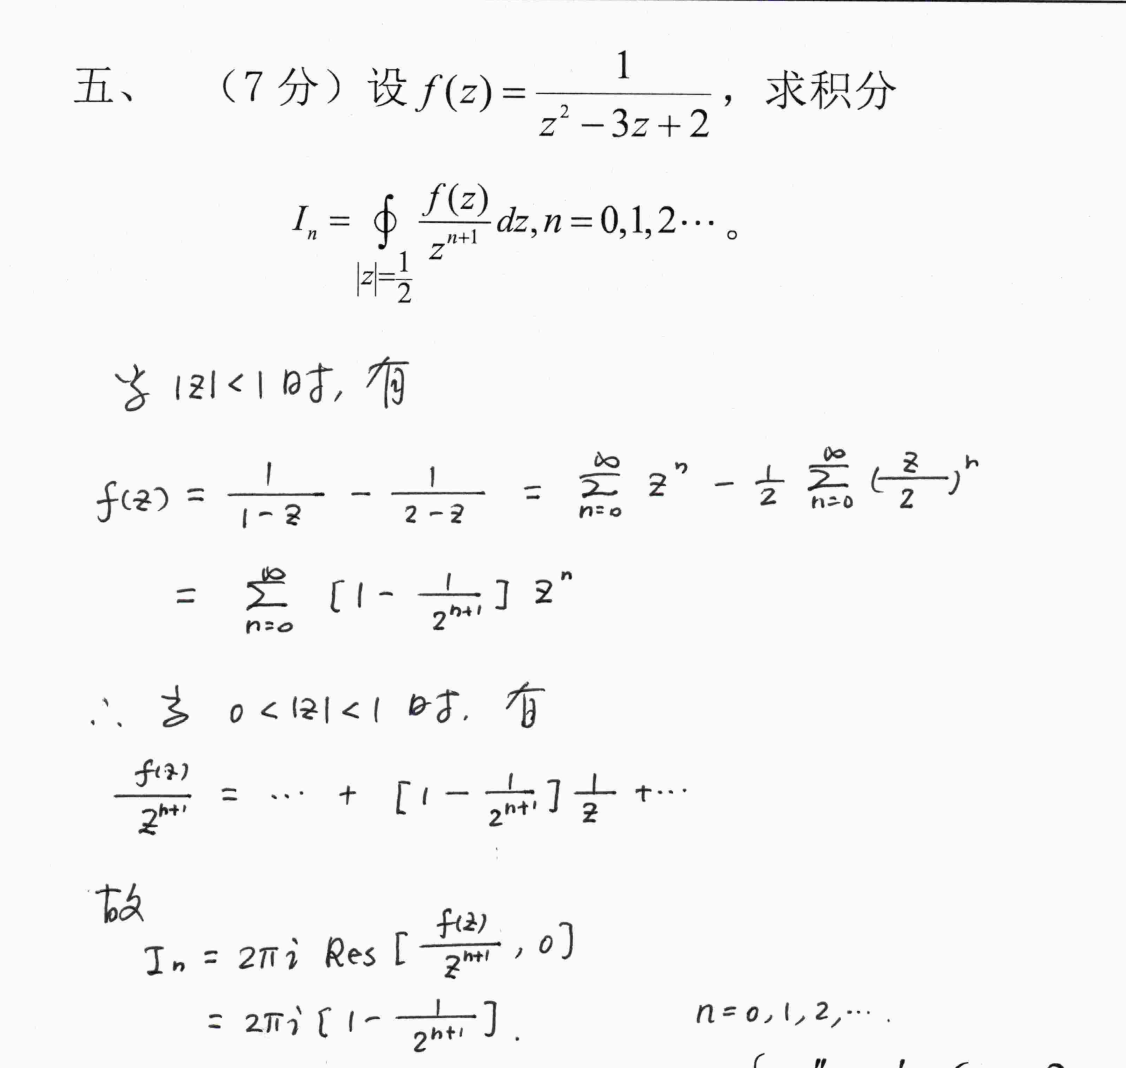 五、 （7 分）设 f(z) = \frac{1}{z^2 - 3z + 2}，求积分
I_n = \oint_{|z|=\frac{1}{2}} \frac{f(z)}{z^{n+1}} dz, n = 0,1,2⋯。
当 |z|<1 时, 有
f(z) = \frac{1}{1-z} - \frac{1}{2-z} = \sum_{n=0}^{∞} z^n - \frac{1}{2} \sum_{n=0}^{∞} (\frac{z}{2})^n
= \sum_{n=0}^{∞} [1 - \frac{1}{2^{n+1}}] z^n
∴ 当 0<|z|<1 时. 有
\frac{f(z)}{z^{n+1}} = ⋯ + [1 - \frac{1}{2^{n+1}}] \frac{1}{z} + ⋯
故
I_n = 2πi Res [\frac{f(z)}{z^{n+1}}, 0]
= 2πi [1 - \frac{1}{2^{n+1}}]. n=0,1,2,⋯.